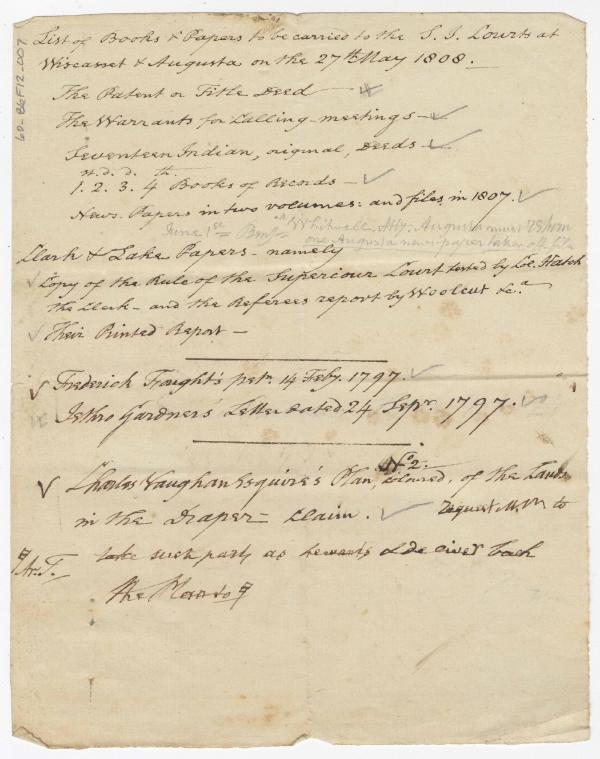 List of Books & Papers to be carried to the S. J. Courts at
Wiscasset & Augusta on the 27th May 1808.
The Patent or Title Deed —
The Warrants for Calling meetings —
Seventeen Indian, original, Deeds —
st. d. d. th.
1. 2. 3. 4 Books of Records —
News Papers in two volumes: and files in 1807.
June 1st Benjn Whitwell, Atty. Augusta
one Augusta news-paper taken off file
Clark & Lake Papers - namely
Copy of the Rule of the Superiour Court tested by Col. Hatch
the Clerk - and the Referees report by Wolcut &c.a
Their Printed Report —
Frederick Trought's petn. 14 Feby. 1797.
Jethro Gardner's Letter dated 24 Sepr. 1797.
No 2.
Charles Vaughan Esquire's Plan, coloured, of the Lands
in the Draper = Claim. request to
take such parts as he wants & deliver back
the Plan to
60-86F12-007